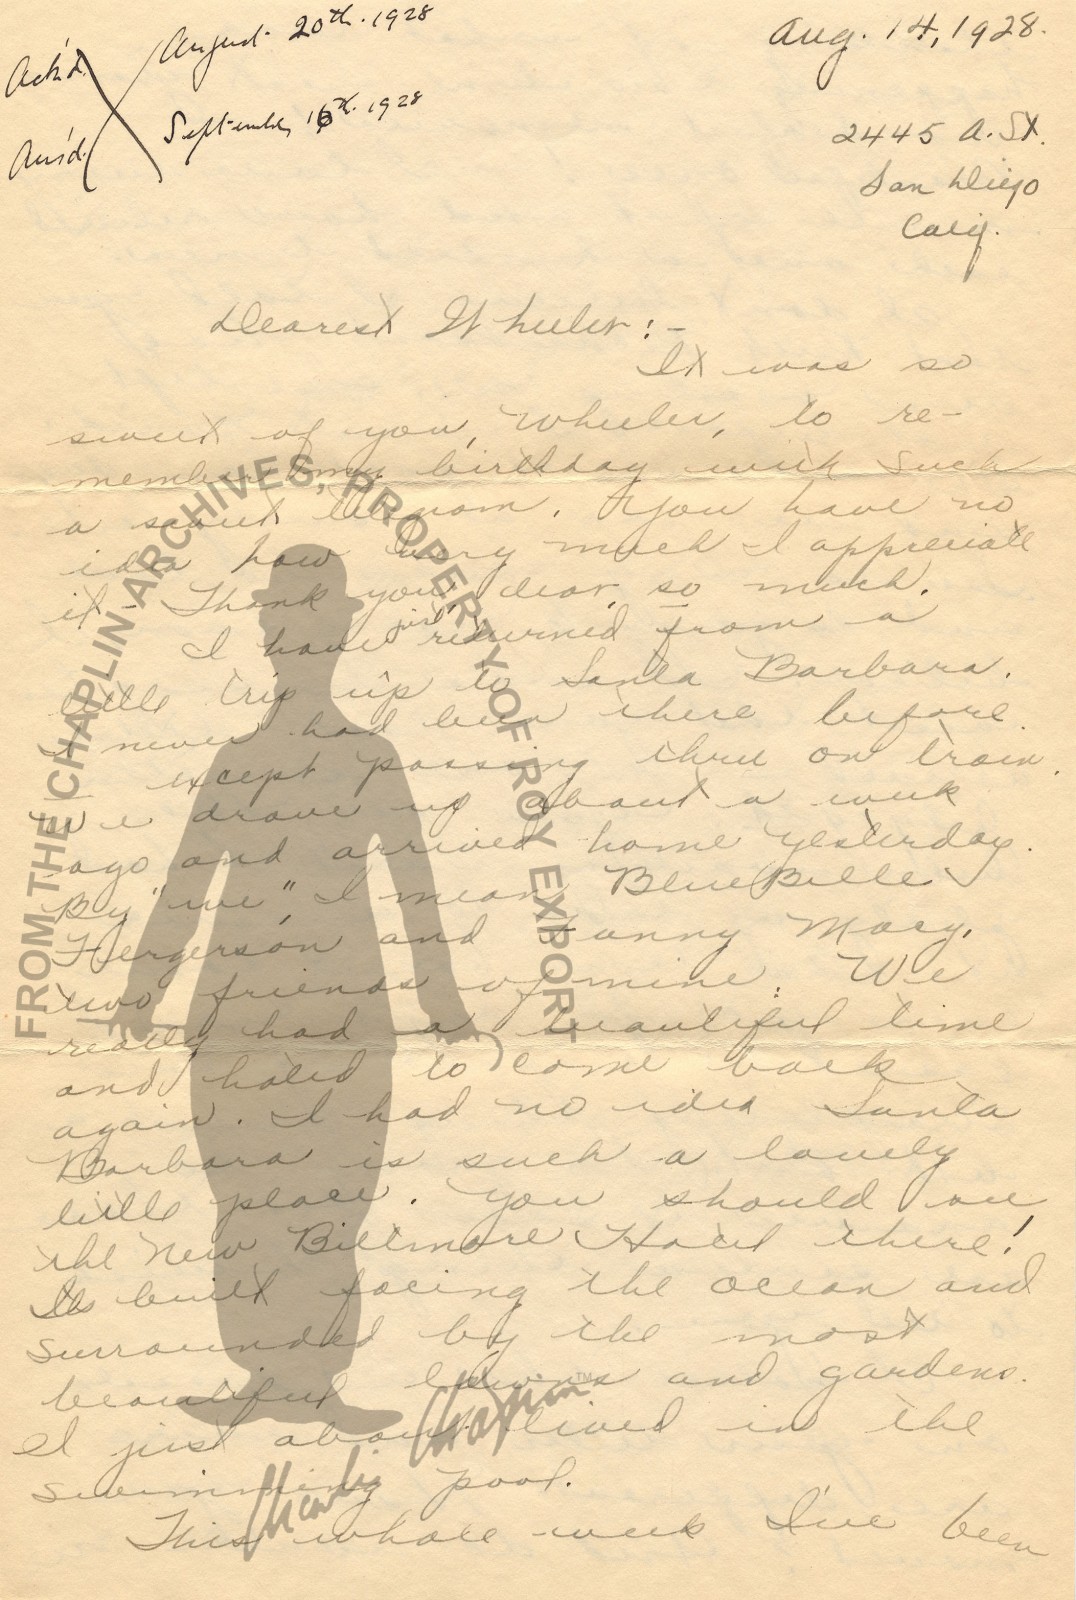 Aug. 14, 1928.
Ack'd. August 20th. 1928
Ans'd. September 16th. 1928
2445 A. St.
San Diego
Calif.
Dearest Wheeler:-
It was so
sweet of you, Wheeler, to re-
member my birthday with such
a sweet telegram. You have no
idea how very much I appreciate
it - Thank you dear, so much.
I have just returned from a
little trip up to Santa Barbara.
I never had been there before
- except passing thru on train.
We drove up about a week
ago and arrived home yesterday.
By "we", I mean BlueBelle
Hergerson and Fanny Macy,
two friends of mine. We
really had a beautiful time
and hated to come back
again. I had no idea Santa
Barbara is such a lovely
little place. You should see
the New Biltmore Hotel there!
Its built facing the ocean and
surrounded by the most
beautiful lawns and gardens.
I just about lived in the
swimming pool.
This whole week I've been
FROM THE CHAPLIN ARCHIVES, PROPERTY OF ROY EXPORT
Charlie Chaplin™